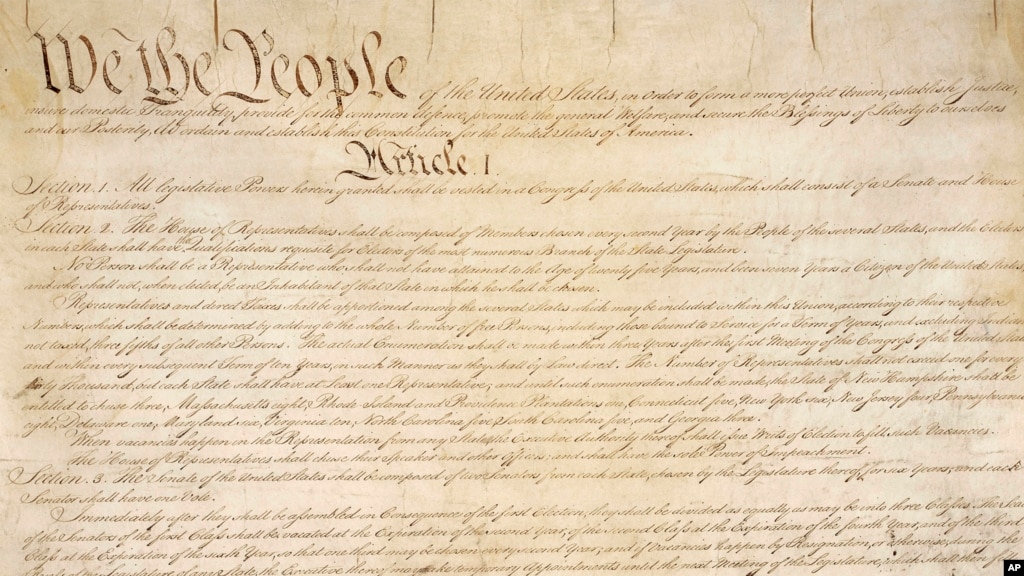 We the People of the United States, in Order to form a more perfect Union, establish Justice,
insure domestic Tranquility, provide for the common defence, promote the general Welfare, and secure the Blessings of Liberty to ourselves
and our Posterity, do ordain and establish this Constitution for the United States of America.
Article. I.
Section. 1. All legislative Powers herein granted shall be vested in a Congress of the United States, which shall consist of a Senate and House
of Representatives.
Section. 2. The House of Representatives shall be composed of Members chosen every second Year by the People of the several States, and the Electors
in each State shall have the Qualifications requisite for Electors of the most numerous Branch of the State Legislature.
No Person shall be a Representative who shall not have attained to the Age of twenty five Years, and been seven Years a Citizen of the United States,
and who shall not, when elected, be an Inhabitant of that State in which he shall be chosen.
Representatives and direct Taxes shall be apportioned among the several States which may be included within this Union, according to their respective
Numbers, which shall be determined by adding to the whole Number of free Persons, including those bound to Service for a Term of Years, and excluding Indians
not taxed, three fifths of all other Persons. The actual Enumeration shall be made within three Years after the first Meeting of the Congress of the United States,
and within every subsequent Term of ten Years, in such Manner as they shall by Law direct. The Number of Representatives shall not exceed one for every
thirty Thousand, but each State shall have at Least one Representative; and until such enumeration shall be made, the State of New Hampshire shall be
entitled to chuse three, Massachusetts eight, Rhode Island and Providence Plantations one, Connecticut five, New York six, New Jersey four, Pennsylvania
eight, Delaware one, Maryland six, Virginia ten, North Carolina five, South Carolina five, and Georgia three.
When vacancies happen in the Representation from any State, the Executive Authority thereof shall issue Writs of Election to fill such Vacancies.
The House of Representatives shall chuse their Speaker and other Officers; and shall have the sole Power of Impeachment.
Section. 3. The Senate of the United States shall be composed of two Senators from each State, chosen by the Legislature thereof, for six Years; and each
Senator shall have one Vote.
Immediately after they shall be assembled in Consequence of the first Election, they shall be divided as equally as may be into three Classes. The Seats
of the Senators of the first Class shall be vacated at the Expiration of the second Year, of the second Class at the Expiration of the fourth Year, and of the third
Class at the Expiration of the sixth Year, so that one third may be chosen every second Year; and if Vacancies happen by Resignation, or otherwise, during the
of the Legislature of any State, the Executive thereof may make temporary Appointments until the next Meeting of the Legislature, which shall then
AP